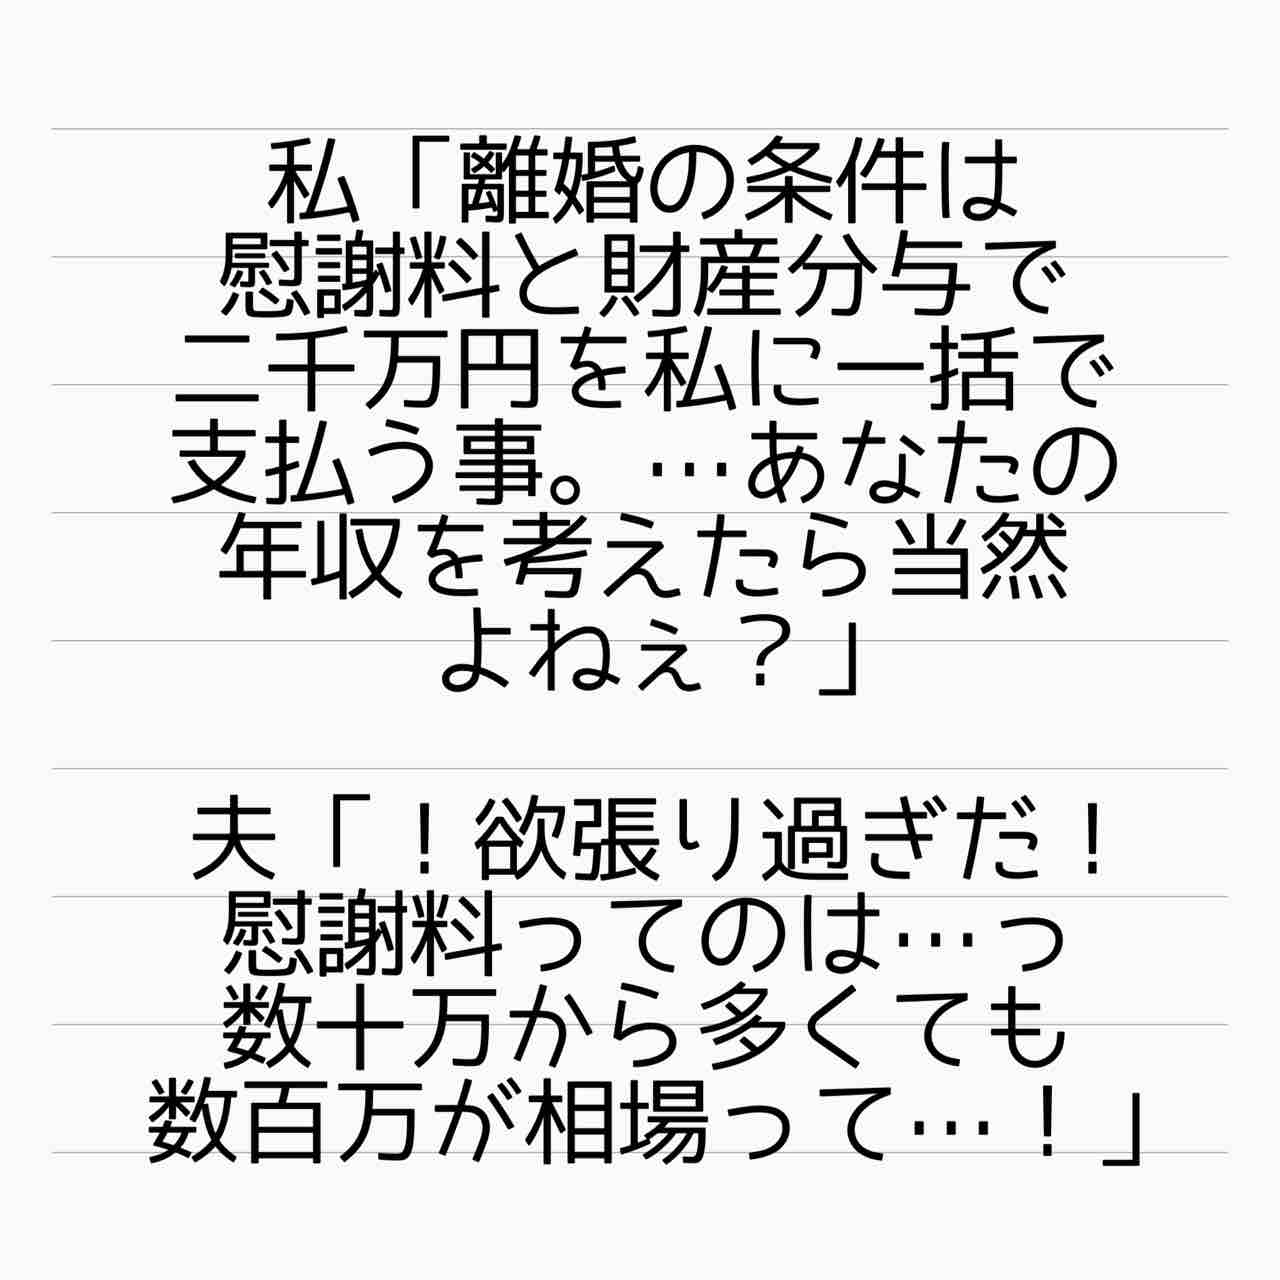 私「離婚の条件は
慰謝料と財産分与で
二千万円を私に一括で
支払う事。…あなたの
年収を考えたら当然
よねぇ？」
夫「！欲張り過ぎだ！
慰謝料ってのは…っ
数十万から多くても
数百万が相場って…！」